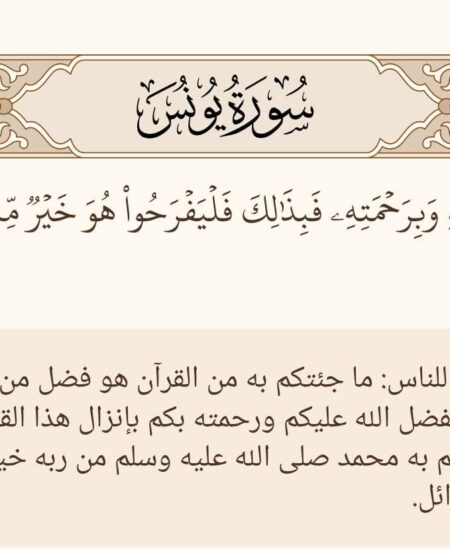 سُورَةُ يُونُسَ
وَبِرَحۡمَتِهِۦ فَبِذَٰلِكَ فَلۡيَفۡرَحُواْ هُوَ خَيۡرٞ
للناس: ما جئتكم به من القرآن هو فضل من
فضل الله عليكم ورحمته بكم بإنزال هذا
به محمد صلى الله عليه وسلم من ربه